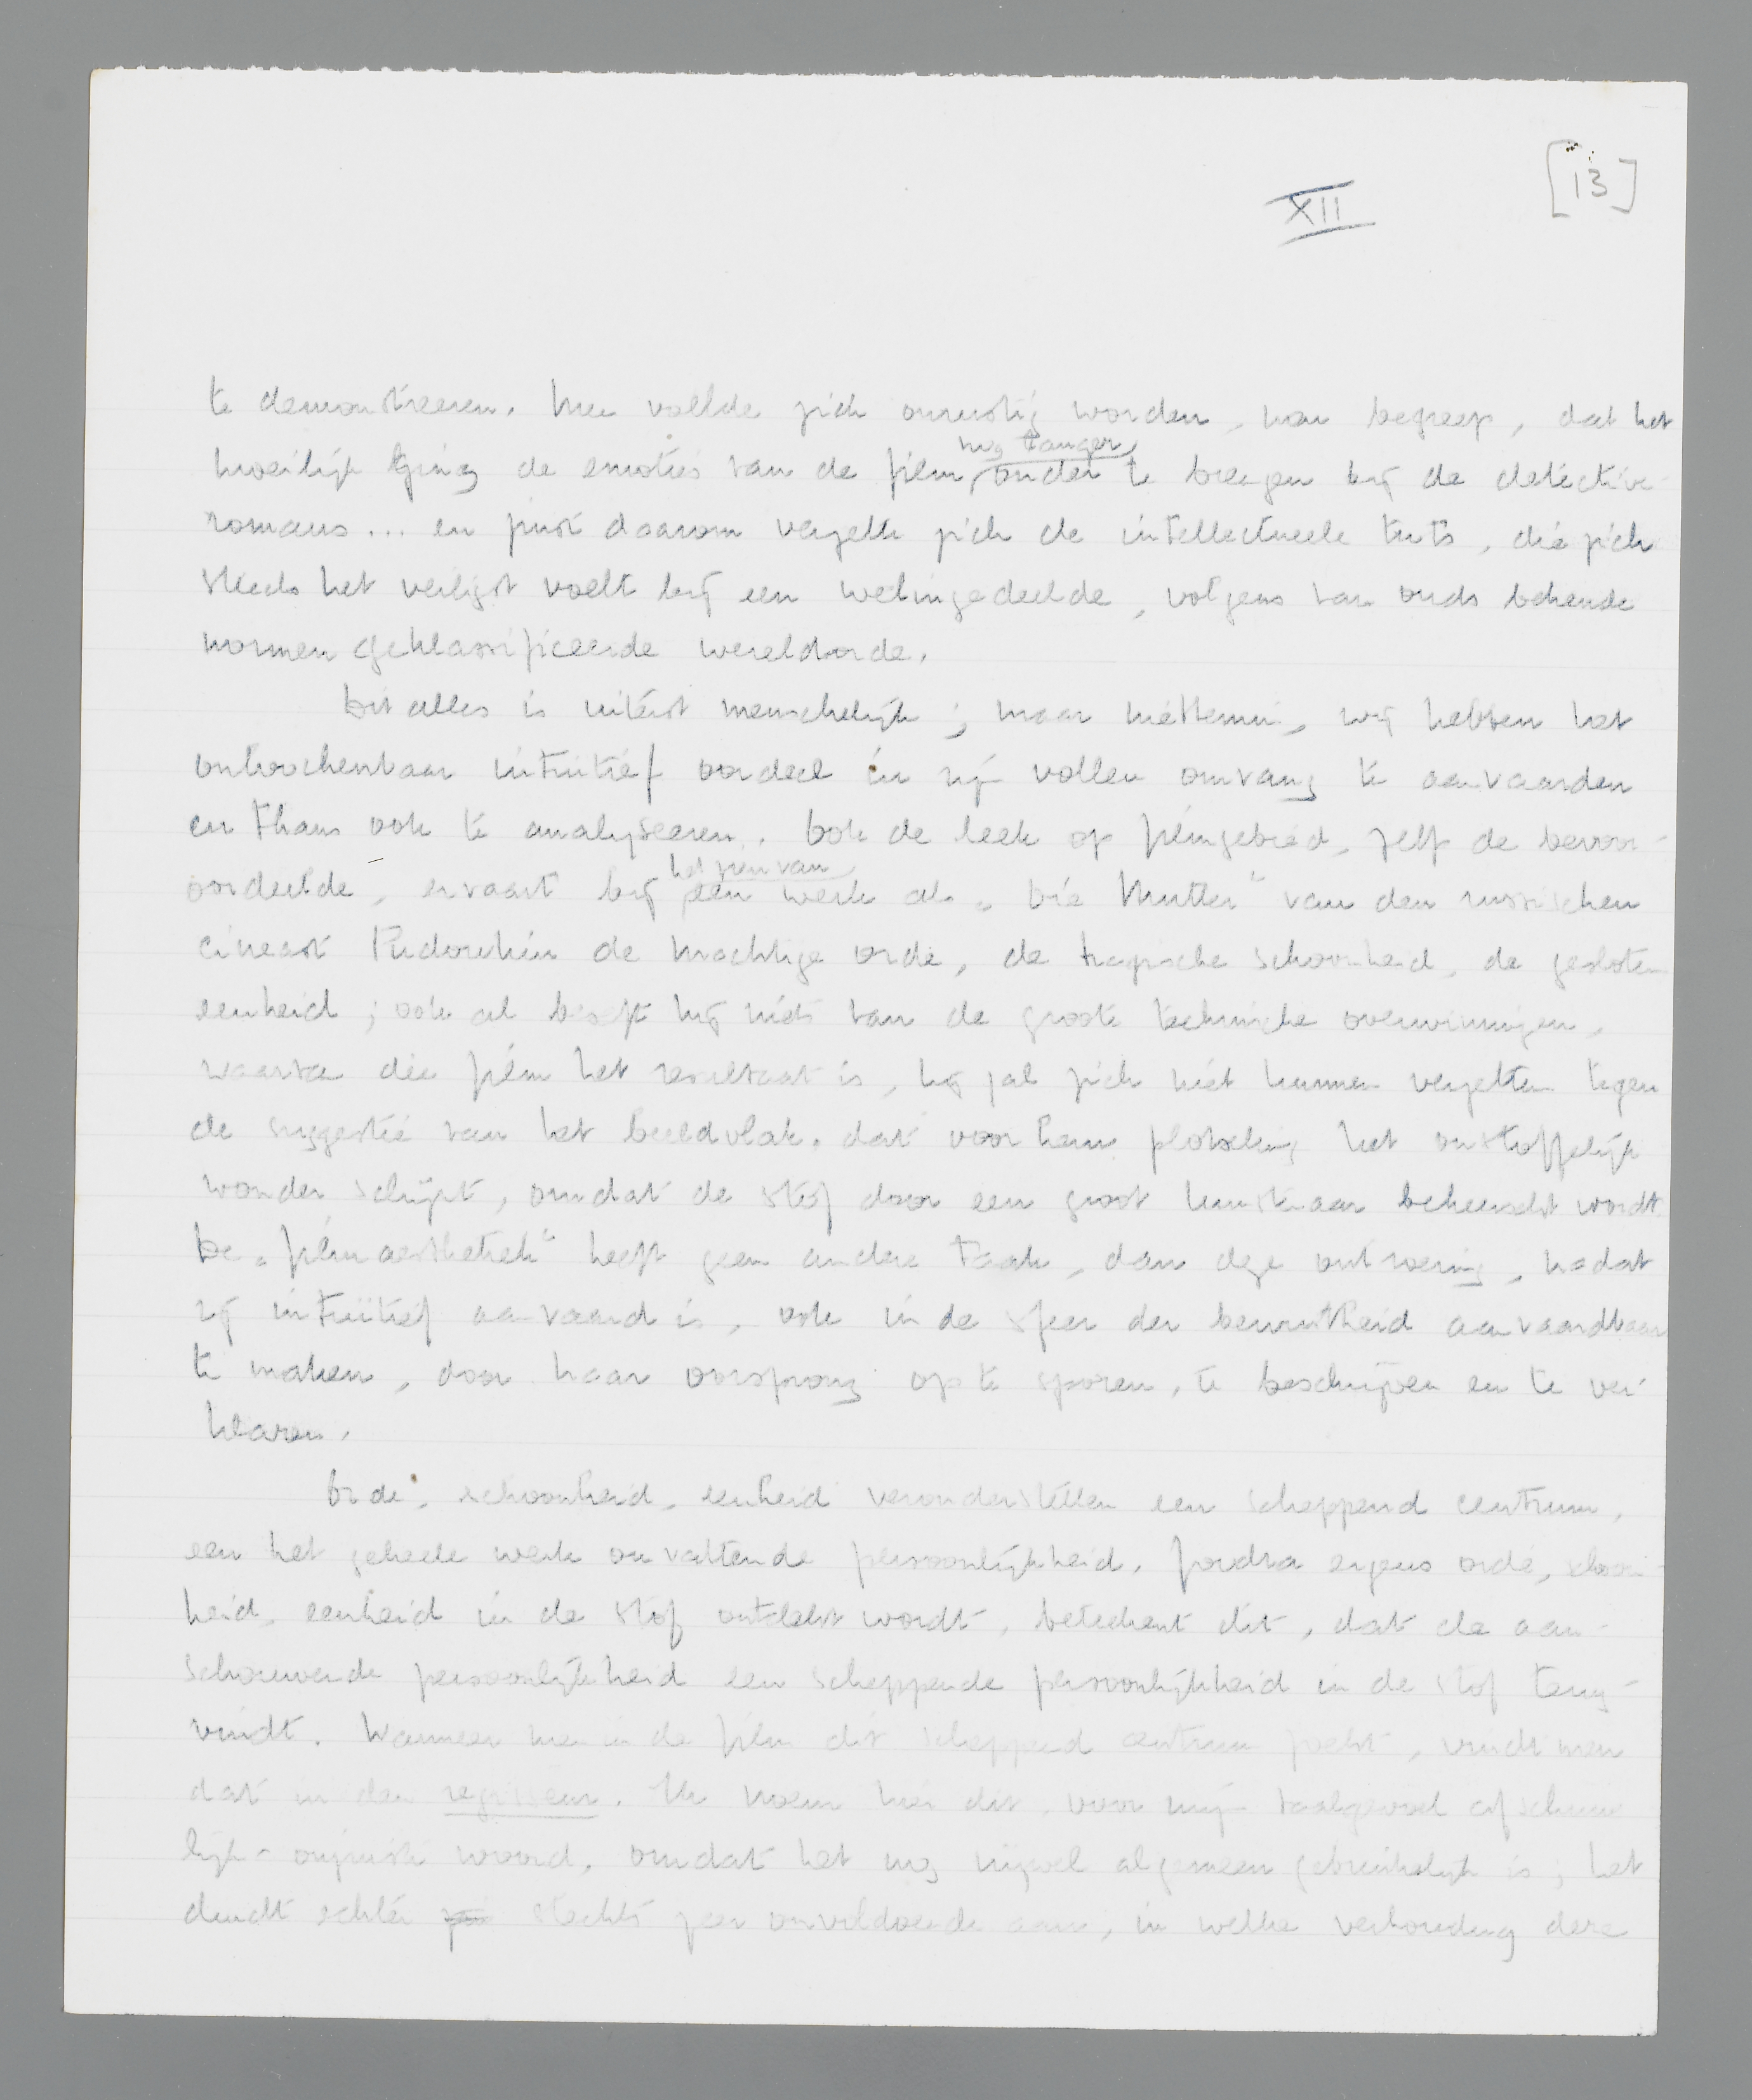 [13]
XII
te demonstreeren. Men voelde zich onrustig worden, men begreep, dat het
moeilijk ging de emoties van de film nog langer onder te brengen bij de detective-
romans... en juist daarom verzette zich de intellectueele trots, die zich
steeds het veiligst voelt bij een welingedeelde, volgens van ouds bekende
normen geklassificeerde wereldorde.
Dit alles is uiterst menschelijk; maar niettemin, wij hebben het
onkreukbaar intuitief oordeel in zijn vollen omvang te aanvaarden
en thans ook te analyseeren. Ook de leek op filmgebied, zelf de bevoor-
oordeelde, ervaart bij het zien van een werk als „Die Mutter" van den russischen
cineast Pudowkin de machtige orde, de tragische schoonheid, de gesloten
eenheid; ook al beseft hij niets van de groote technische overwinningen,
waarva die film het resultaat is, hij zal zich niet kunnen verzetten tegen
de suggestie van het beeldvlak, dat voor hem plotseling het onstoffelijk
wonder schijnt, omdat de stof door een groot kunstenaar beheerscht wordt.
De „filmaesthetiek" heeft geen andere taak, dan deze ontroering, nadat
zij intuïtief aanvaard is, ook in de sfeer der bewustheid aanvaardbaar
te maken, door haar oorsprong op te sporen, te beschrijven en te ver-
klaren.
Orde, schoonheid, eenheid veronderstellen een scheppend centrum,
een het geheele werk omvattende persoonlijkheid. Zoodra ergens orde, schoon-
heid, eenheid in de stof ontdekt wordt, beteekent dit, dat de aan-
schouwende persoonlijkheid een scheppende persoonlijkheid in de stof terug-
vindt. Wanneer men in de film dit scheppend centrum zoekt, vindt men
dat in den regisseur. Ik noem hier dit, voor mijn taalgevoel afschuwe-
lijk-onjuiste woord, omdat het nog vrijwel algemeen gebruikelijk is; het
duidt echter slechts zeer onvoldoende aan, in welke verhouding deze